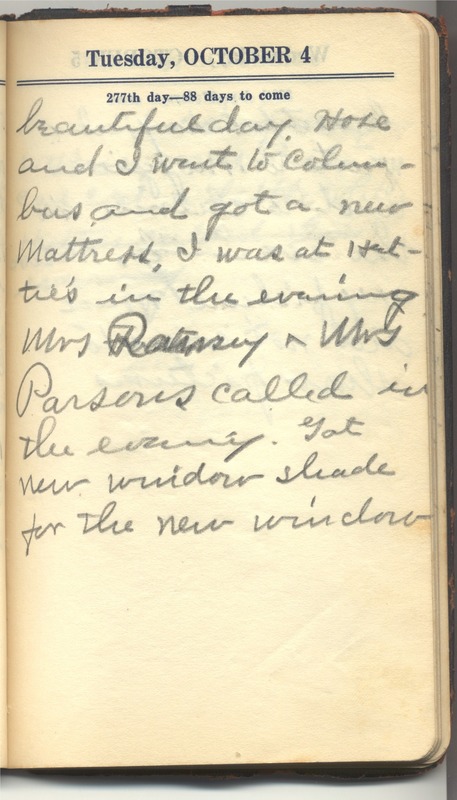 Tuesday, OCTOBER 4
277th day—88 days to come
beautiful day. Hose
and I went to Colum-
bus and got a new
Mattress, I was at Het-
tie's in the evening
Mrs Ramsey & Mrs
Parsons called in
the evening. Got
new window shade
for the new window